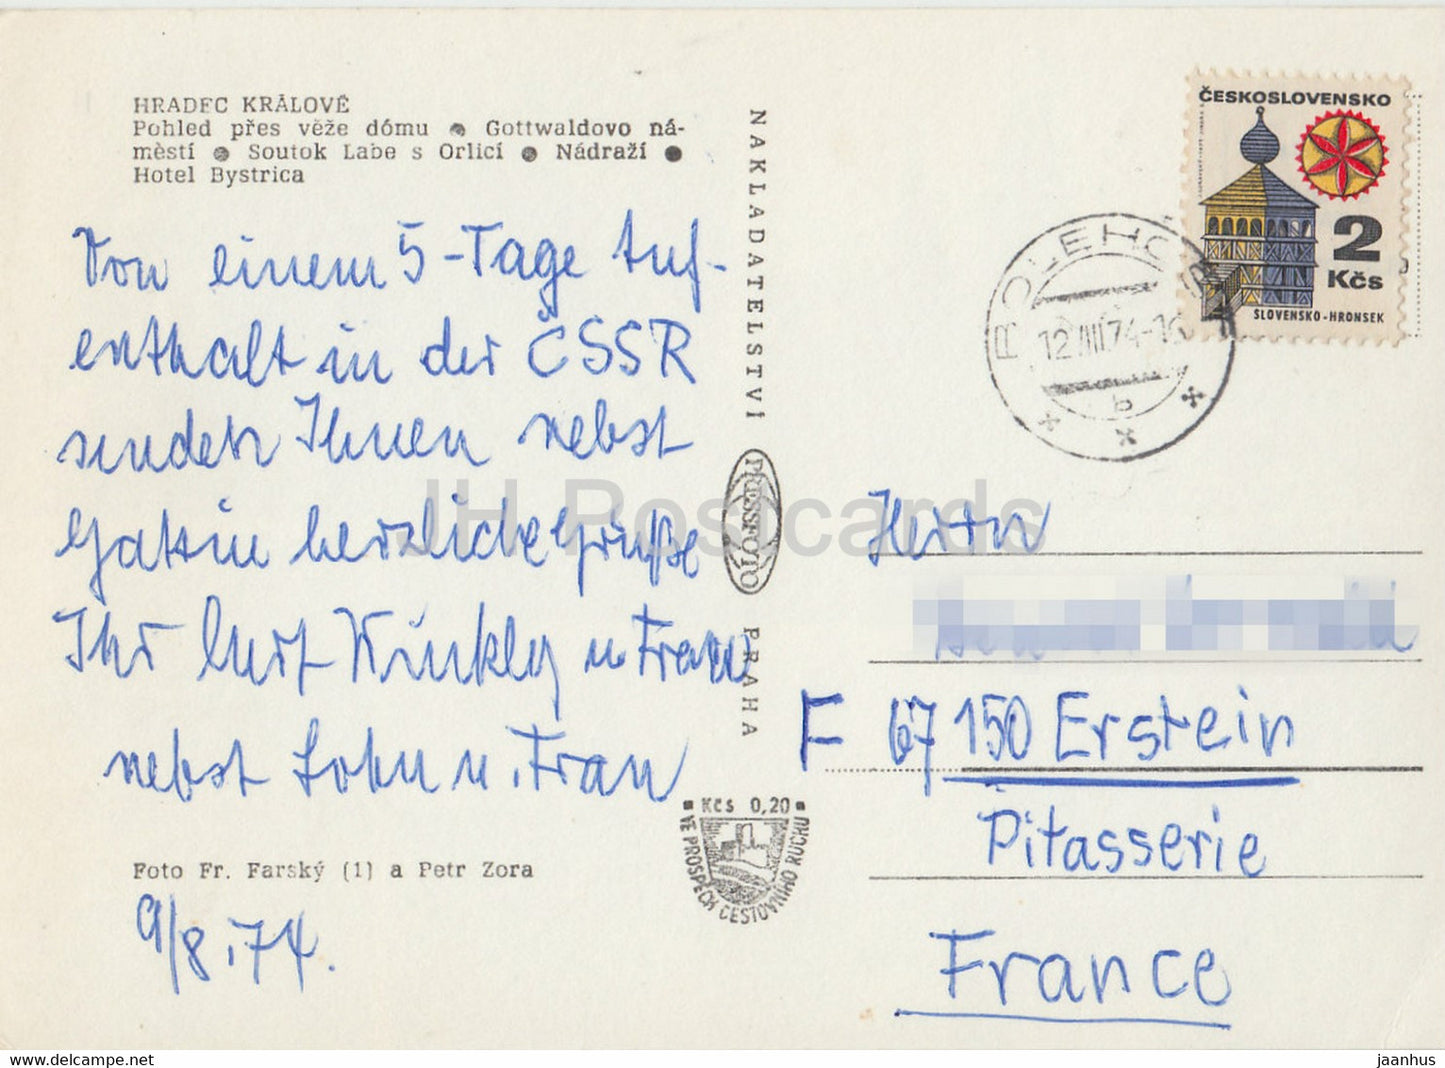 HRADEC KRÁLOVÉ
Pohled přes věže dómu ● Gottwaldovo ná-
městí ● Soutok Labe s Orlicí ● Nádraží ●
Hotel Bystrica
Von einem 5-Tage Auf-
enthalt in der ČSSR
senden Ihnen nebst
Gattin herzliche Grüße
Ihr Kurt Künkly u Frau
nebst Sohn u. Frau
Foto Fr. Farský (1) a Petr Zora
9/8.74.
NAKLADATELSTVÍ
PRESSFOTO
PRAHA
Kčs 0,20
VE PROSPĚCH CESTOVNÍHO RUCHU
ČESKOSLOVENSKO
2
Kčs
SLOVENSKO-HRONSEK
12.VIII.74-16
b
Herrn
F 67150 Erstein
Pitasserie
France
JH Postcards
jaanhus / delcampe.net